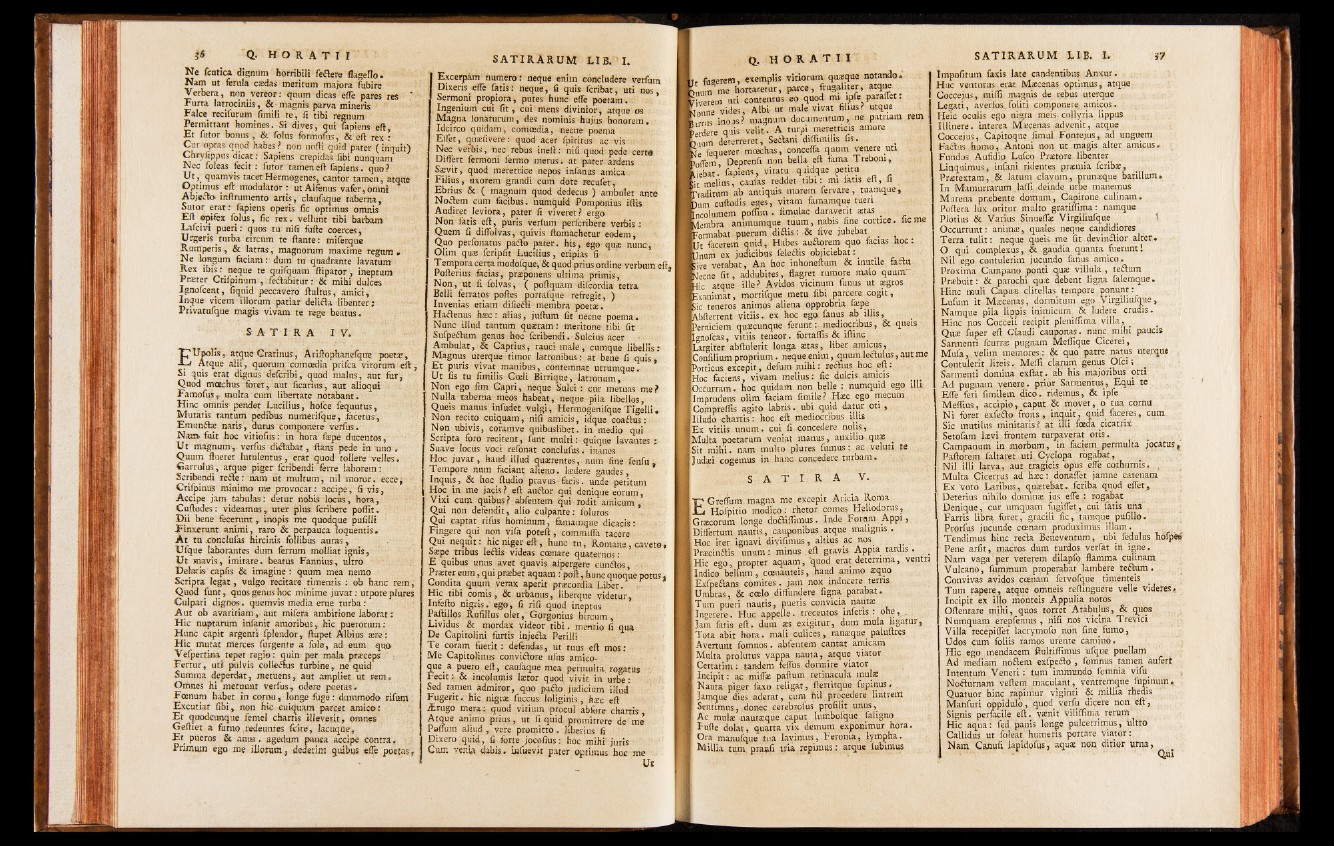 36 Q. HORATII
Ne scutica dignum horribili sectere flagello.
Nam ut ferula cædas meritum majora subire
Verbera, non vereor: quum dicas esse pares res
Furta latrociniis, & magnis parva mineris
Falce recisurum simili te, si tibi regnum
Permittant homines. Si dives, qui sapiens est,
Et sutor bonus, & solus formosus, & est rex:
Cur optas quod habes? non nosti quid pater (inquit)
Chrysippus dicat: Sapiens crepidas sibi nunquam
Nec soleas fecit: sutor tamen est sapiens. quo?
Ut, quamvis tacet Hermogenes, cantor tamen, atque
Optimus est modulator: ut Alfenus vafer, omni
Abjecto instrumento artis, clausaque taberna,
Sutor erat: sapiens operis sic optimus omnis
Est opifex solus, sic rex. vellunt tibi barbam
Lascivi pueri: quos tu nisi fuste coerces,
Urgeris turba circum te stante: miserque
Rumperis, & latras, magnorum maxime regum.
Ne longum faciam: dum tu quadrante lavatum
Rex ibis: neque te quisquam stipator, ineptum
Præter Crispinum, sectabitur: & mihi dulces
Ignoscent, siquid peccavero stultus, amici,
Inque vicem illorum patiar delicta libenter:
Privatusque magis vivam te rege beatus.
SATIRA IV.
EUpolis, atque Cratinus, Aristophanesque poetæ,
Atque alii, quorum comœdia prisca virorum est,
Si quis erat dignus describi, quod malus, aut fur,
Quod mœchus foret, aut sicarius, aut alioqui
Famosus, multa cum libertate notabant.
Hinc omnis pendet Lucilius, hosce sequutus,
Mutatis tantum pedibus numerisque, facetus,
Emunctæ naris, durus componere versus.
Nam fuit hoc vitiosus: in hora sæpe ducentos,
Ut magnum, versus dictabat, stans pede in uno.
Quum flueret lutulentus, erat quod tollere velles.
Garrulus, atque piger scribendi ferre laborem:
Scribendi recte: nam ut multum, nil moror. ecce,
Crispinus minimo me provocat: accipe, si vis,
Accipe jam tabulas: detur nobis locus, hora,
Custodes: videamus, uter plus scribere possit.
Dii bene fecerunt, inopis me quodque pusilli
Finxerunt animi, raro & perpauca loquentis.
At tu conclusas hircinis follibus auras,
Usque laborantes dum ferrum molliat ignis,
Ut mavis, imitare. beatus Fannius, ultro
Delatis capsis & imagine: quum mea nemo
Scripta legat, vulgo recitare timentis: ob hanc rem,
Quod sunt, quos genus hoc minime juvat: utpote plures
Culpari dignos. quemvis media erue turba:
Aut ob avaritiam, aut misera ambitione laborat:
Hic nuptarum insanit amoribus, hic puerorum:
Hunc capit argenti splendor, stupet Albius ære:
Hic mutat merces surgente a sole, ad eum quo
Vespertina tepet regio: quin per mala præceps
Fertur, uti pulvis collectus turbine, ne quid
Summa deperdat, metuens, aut ampliet ut rem.
Omnes hi metuunt versus, odere poetas.
Fœnum habet in cornu, longe fuge: dummodo risum
Excutiat sibi, non hic cuiquam parcet amico:
Et quodcunque semel chartis illeverit, omnes
Gestiet a furno redeuntes scire, lacuque,
Et pueros & anus. agedum pauca accipe contra.
Primum ego me illorum, dederim quibus esse poetas,
SATIRARUM LIB. I.
Excerpam numero: neque enim concludere versum
Dixeris esse satis: neque, si quis scribat, uti nos,
Sermoni propiora, putes hunc esse poetam.
Ingenium cui sit, cui mens divinior, atque os
Magna sonaturum, des nominis hujus honorem.
Idcirco quidam, comœdia, necne poema
Esset, quæsivere: quod acer spiritus ac vis
Nec verbis, nec rebus inest: nisi quod pede certo
Differt sermoni sermo merus. at pater ardens
Sævit, quod meretrice nepos insanus amica
Filius, uxorem grandi cum dote recuset,
Ebrius & (magnum quod dedecus) ambulet ante
Noctem cum facibus. numquid Pomponius istis
Audiret leviora, pater si viveret? ergo
Non satis est, puris versum perscribere verbis:
Quem si dissolvas, quivis stomachetur eodem,
Quo personatus pacto pater. his, ego quæ nunc,
Olim quæ scripsit Lucilius, eripias si
Tempora certa modosque, & quod prius ordine verbum est,
Posterius facias, præponens ultima primis,
Non, ut si solvas, (postquam discordia tetra
Belli ferratos postes portasque refregit,)
Invenias etiam disiecti membra poetæ.
Hactenus hæc: alias, justum sit necne poema.
Nunc illud tantum quæram: meritone tibi sit
Suspectum genus hoc scribendi. Sulcius acer
Ambulat, & Caprius, rauci male, cumque libellis:
Magnus uterque timor latronibus: at bene si quis,
Et puris vivat manibus, contemnat utrumque.
Ut sis tu similis Cœli Birrique, latronum,
Non ego sim Capri, neque Sulci: cur metuas me?
Nulla taberna meos habeat, neque pila libellos,
Queis manus insudet vulgi, Hermogenisque Tigelli.
Non recito cuiquam, nisi amicis, idque coactus:
Non ubivis, coramve quibuslibet. in medio qui
Scripta foro recitent, sunt multi: quique lavantes:
Suave locus voci resonat conclusus. inanes
Hoc juvat, haud illud quærentes, num sine sensu,
Tempore num faciant alieno. lædere gaudes,
Inquis, & hoc studio pravus facis. unde petitum
Hoc in me jacis? est auctor qui denique eorum,
Vixi cum quibus? absentem qui rodit amicum,
Qui non defendit, alio culpante: solutos
Qui captat risus hominum, famamque dicacis:
Fingere qui non visa potest, commissa tacere
Qui nequit: hic niger est, hunc tu, Romane, caveto.
Sæpe tribus lectis videas cœnare quaternos:
E quibus unus avet quavis aspergere cunctos,
Præter eum, qui præbet aquam: post, hunc quoque potus,
Condita quum verax aperit præcordia Liber.
Hic tibi comis, & urbanus, liberque videtur,
Infesto nigris. ego, si risi quod ineptus
Pastillos Rufillus olet, Gorgonius hircum,
Lividus & mordax videor tibi. mentio si qua
De Capitolini furtis injecta Petilli
Te coram fuerit: defendas, ut tuus est mos:
Me Capitolinus convictore usus amico-
que a puero est, causaque mea permulta rogatus
Fecit: & incolumis lætor quod vivit in urbe:
Sed tamen admiror, quo pacto judicium illud
Fugerit. hic nigræ succus loliginis, hæc est
Ærugo mera: quod vitium procul abfore chartis,
Atque animo prius, ut si quid promittere de me
Possum aliud, vere promitto. liberius si
Dixero quid, si forte jocosius: hoc mihi juris
Cum venia dabis. insuevit pater optimus hoc me
Ut
Q. HORATII
Ut fugerem, exemplis vitiorum quæque notando.
Quum me hortaretur, parce, frugaliter, atque
Viverem uti contentus eo quod mi ipse parasset:
Nonne vides, Albi ut male vivat filius? utque
Barrus inops? magnum documentum, ne patriam rem
Perdere quis velit. A turpi meretricis amore
Quum deterreret, Sectani dissimilis sis.
Ne sequerer mœchas, concessa quum venere uti
Possem, Deprensi non bella est fama Treboni,
Aiebat. sapiens, vitatu quidque petitu
Sit melius, causas reddet tibi: mi satis est, si
Traditum ab antiquis morem servare, tuamque,
Dum custodis eges, vitam famamque tueri
Incolumem possim. simulac duraverit ætas
Membra animumque tuum, nabis sine cortice. sic me
Formabat puerum dictis: & sive jubebat
Ut facerem quid, Habes auctorem quo facias hoc:
Unum ex judicibus selectis objiciebat:
Sive vetabat, An hoc inhonestum & inutile factu
Necne sit, addubites, flagret rumore malo quum
Hic atque ille? Avidos vicinum funus ut ægros
Exanimat, mortisque metu sibi parcere cogit,
Sic teneros animos aliena opprobria sæpe
Absterrent vitiis. ex hoc ego sanus ab illis,
Perniciem quæcunque ferunt: mediocribus, & queis
Ignoscas, vitiis teneor. fortassis & istinc
Largiter abstulerit longa ætas, liber amicus,
Consilium proprium. neque enim, quum lectulus, aut me
Porticus excepit, desum mihi: rectius hoc est:
Hoc faciens, vivam melius: sic dulcis amicis
Occurram. hoc quidam non belle: numquid ego illi
Imprudens olim faciam simile? Hæc ego mecum
Compressis agito labris. ubi quid datur oti,
Illudo chartis: hoc est mediocribus illis
Ex vitiis unum. cui si concedere nolis,
Multa poetarum veniat manus, auxilio quæ
Sit mihi. nam multo plures sumus: ac veluti te
Judæi cogemus in hanc concedere turbam.
SATIRA V.
EGressum magna me excepit Aricia Roma
Hospitio modico: rhetor comes Heliodorus,
Græcorum longe doctissimus. Inde Forum Appi,
Differtum nautis, cauponibus atque malignis.
Hoc iter ignavi divisimus, altius ac nos
Præcinctis unum: minus est gravis Appia tardis.
Hic ego, propter aquam, quod erat deterrima, ventri
Indico bellum, cœnanteis, haud animo æquo
Exspectans comites. jam nox inducere terris
Umbras, & cœlo diffundere signa parabat.
Tum pueri nautis, pueris convicia nautæ
Ingerere. Huc appelle. trecentos inseris: ohe,
Jam satis est. dum æs exigitur, dum mula ligatur,
Tota abit hora. mali culices, ranæque palustres
Avertunt somnos. absentem cantat amicam
Multa prolutus vappa nauta, atque viator
Certatim: tandem fessus dormire viator
Incipit: ac missæ pastum retinacula mulæ
Nauta piger saxo religat, stertitque supinus.
Jamque dies aderat, cum nil procedere lintrem
Sentimus, donec cerebrosus prosilit unus,
Ac mulæ nautæque caput lumbosque saligno
Fuste dolat, quarta vix demum exponimur hora.
Ora manusque tua lavimus, Feronia, lympha.
Millia tum pransi tria repimus: atque subimus
SATIRARUM LIB. I. 37
Impositum saxis late candentibus Anxur.
Huc venturus erat Mæcenas optimus, atque
Coccejus, missi magnis de rebus uterque
Legati, aversos soliti componere amicos.
Heic oculis ego nigra meis collyria lippus
Illinere. interea Mæcenas advenit, atque
Coccejus, Capitoque simul Fontejus, ad unguem
Factus homo, Antoni non ut magis alter amicus.
Fundos Aufidio Lusco Prætore libenter
Linquimus, insani ridentes præmia scribæ,
Prætextam, & latum clavum, prunæque batillum.
In Mamurrarum lassi deinde urbe manemus
Murena præbente domum, Capitone culinam.
Postera lux oritur multo gratissima: namque
Plotius & Varius Sinuessæ Virgiliusque
Occurrunt: animæ, quales neque candidiores
Terra tulit: neque queis me sit devinctior alter.
O qui complexus, & gaudia quanta fuerunt!
Nil ego contulerim jucundo sanus amico.
Proxima Campano ponti quæ villula, tectum
Præbuit: & parochi quæ debent ligna salemque.
Hinc muli Capuæ clitellas tempore ponunt:
Lusum it Mæcenas, dormitum ego Virgiliusque,
Namque pila lippis inimicum & ludere crudis.
Hinc nos Cocceii recipit plenissima villa,
Quæ super est Claudi cauponas. nunc mihi paucis
Sarmenti scurræ pugnam Messique Cicerri,
Musa, velim memores: & quo patre natus uterque
Contulerit liteis. Messi clarum genus Osci:
Sarmenti domina exstat. ab his majoribus orti
Ad pugnam venere. prior Sarmentus, Equi te
Esse feri similem dico. ridemus, & ipse
Messius, accipio, caput & movet, o tua cornu
Ni foret exsecto frons, inquit, quid faceres, cum
Sic mutilus minitaris? at illi fœda cicatrix
Setosam lævi frontem turpaverat oris.
Campanum in morbum, in faciem permulta jocatus,
Pastorem saltaret uti Cyclopa rogabat,
Nil illi larva, aut tragicis opus esse cothurnis.
Multa Cicerrus ad hæc: donasset jamne catenam
Ex voto Laribus, quærebat. scriba quod esset,
Deterius nihilo dominæ jus esse: rogabat
Denique, cur umquam fugisset, cui satis una
Farris libra foret, gracili sic, tamque pusillo.
Prorsus jucunde cœnam produximus illam.
Tendimus hinc recta Beneventum, ubi sedulus hospes
Pene arsit, macros dum turdos versat in igne.
Nam vaga per veterem dilapso flamma culinam
Vulcano, summum properabat lambere tectum.
Convivas avidos cœnam servosque timenteis
Tum rapere, atque omneis restinguere velle videres.
Incipit ex illo monteis Appulia notos
Ostentare mihi, quos torret Atabulus, & quos
Numquam erepsemus, nisi nos vicina Trevici
Villa recepisset lacrymoso non sine fumo,
Udos cum foliis ramos urente camino.
Hic ego mendacem stultissimus usque puellam
Ad mediam noctem exspecto, somnus tamen aufert
Intentum Veneri: tum immundo somnia visu
Nocturnam vestem maculant, ventremque supinum.
Quatuor hinc rapimur viginti & millia rhedis
Mansuri oppidulo, quod versu dicere non est,
Signis perfacile est. vænit vilissima rerum
Hic aqua: sed panis longe pulcerrimus, ultro
Callidus ut soleat humeris portare viator:
Nam Canusi lapidosus, aquæ non ditior urna,
Qui